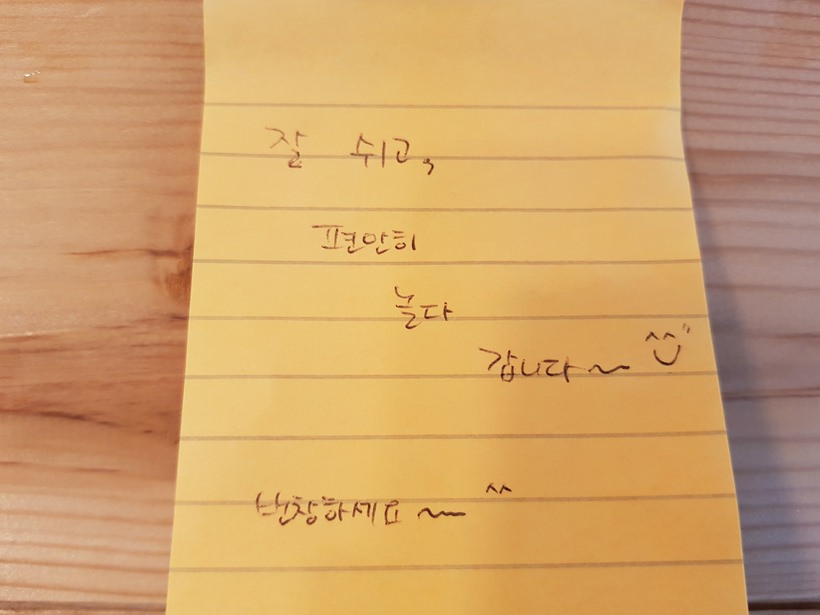 잘 쉬고,
편안히
놀다
갑니다~ ^^
번창하세요~ ^^